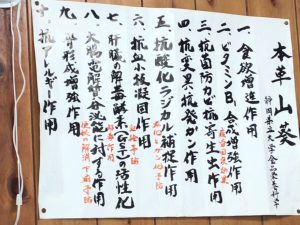 本草 山葵
静岡県立大学食品栄養科学
一、食欲増進作用
二、ビタミンB1合成増強作用
三、抗菌防カビ抗寄生虫作用
四、抗変異 抗発ガン作用
五、抗酸化ラジカル補捉作用
六、抗血小板凝固作用
七、肝臓の解毒酵素(GST)の活性化
八、大腸電解質分泌に対する作用
九、骨形成増強作用
十、抗アレルギー作用